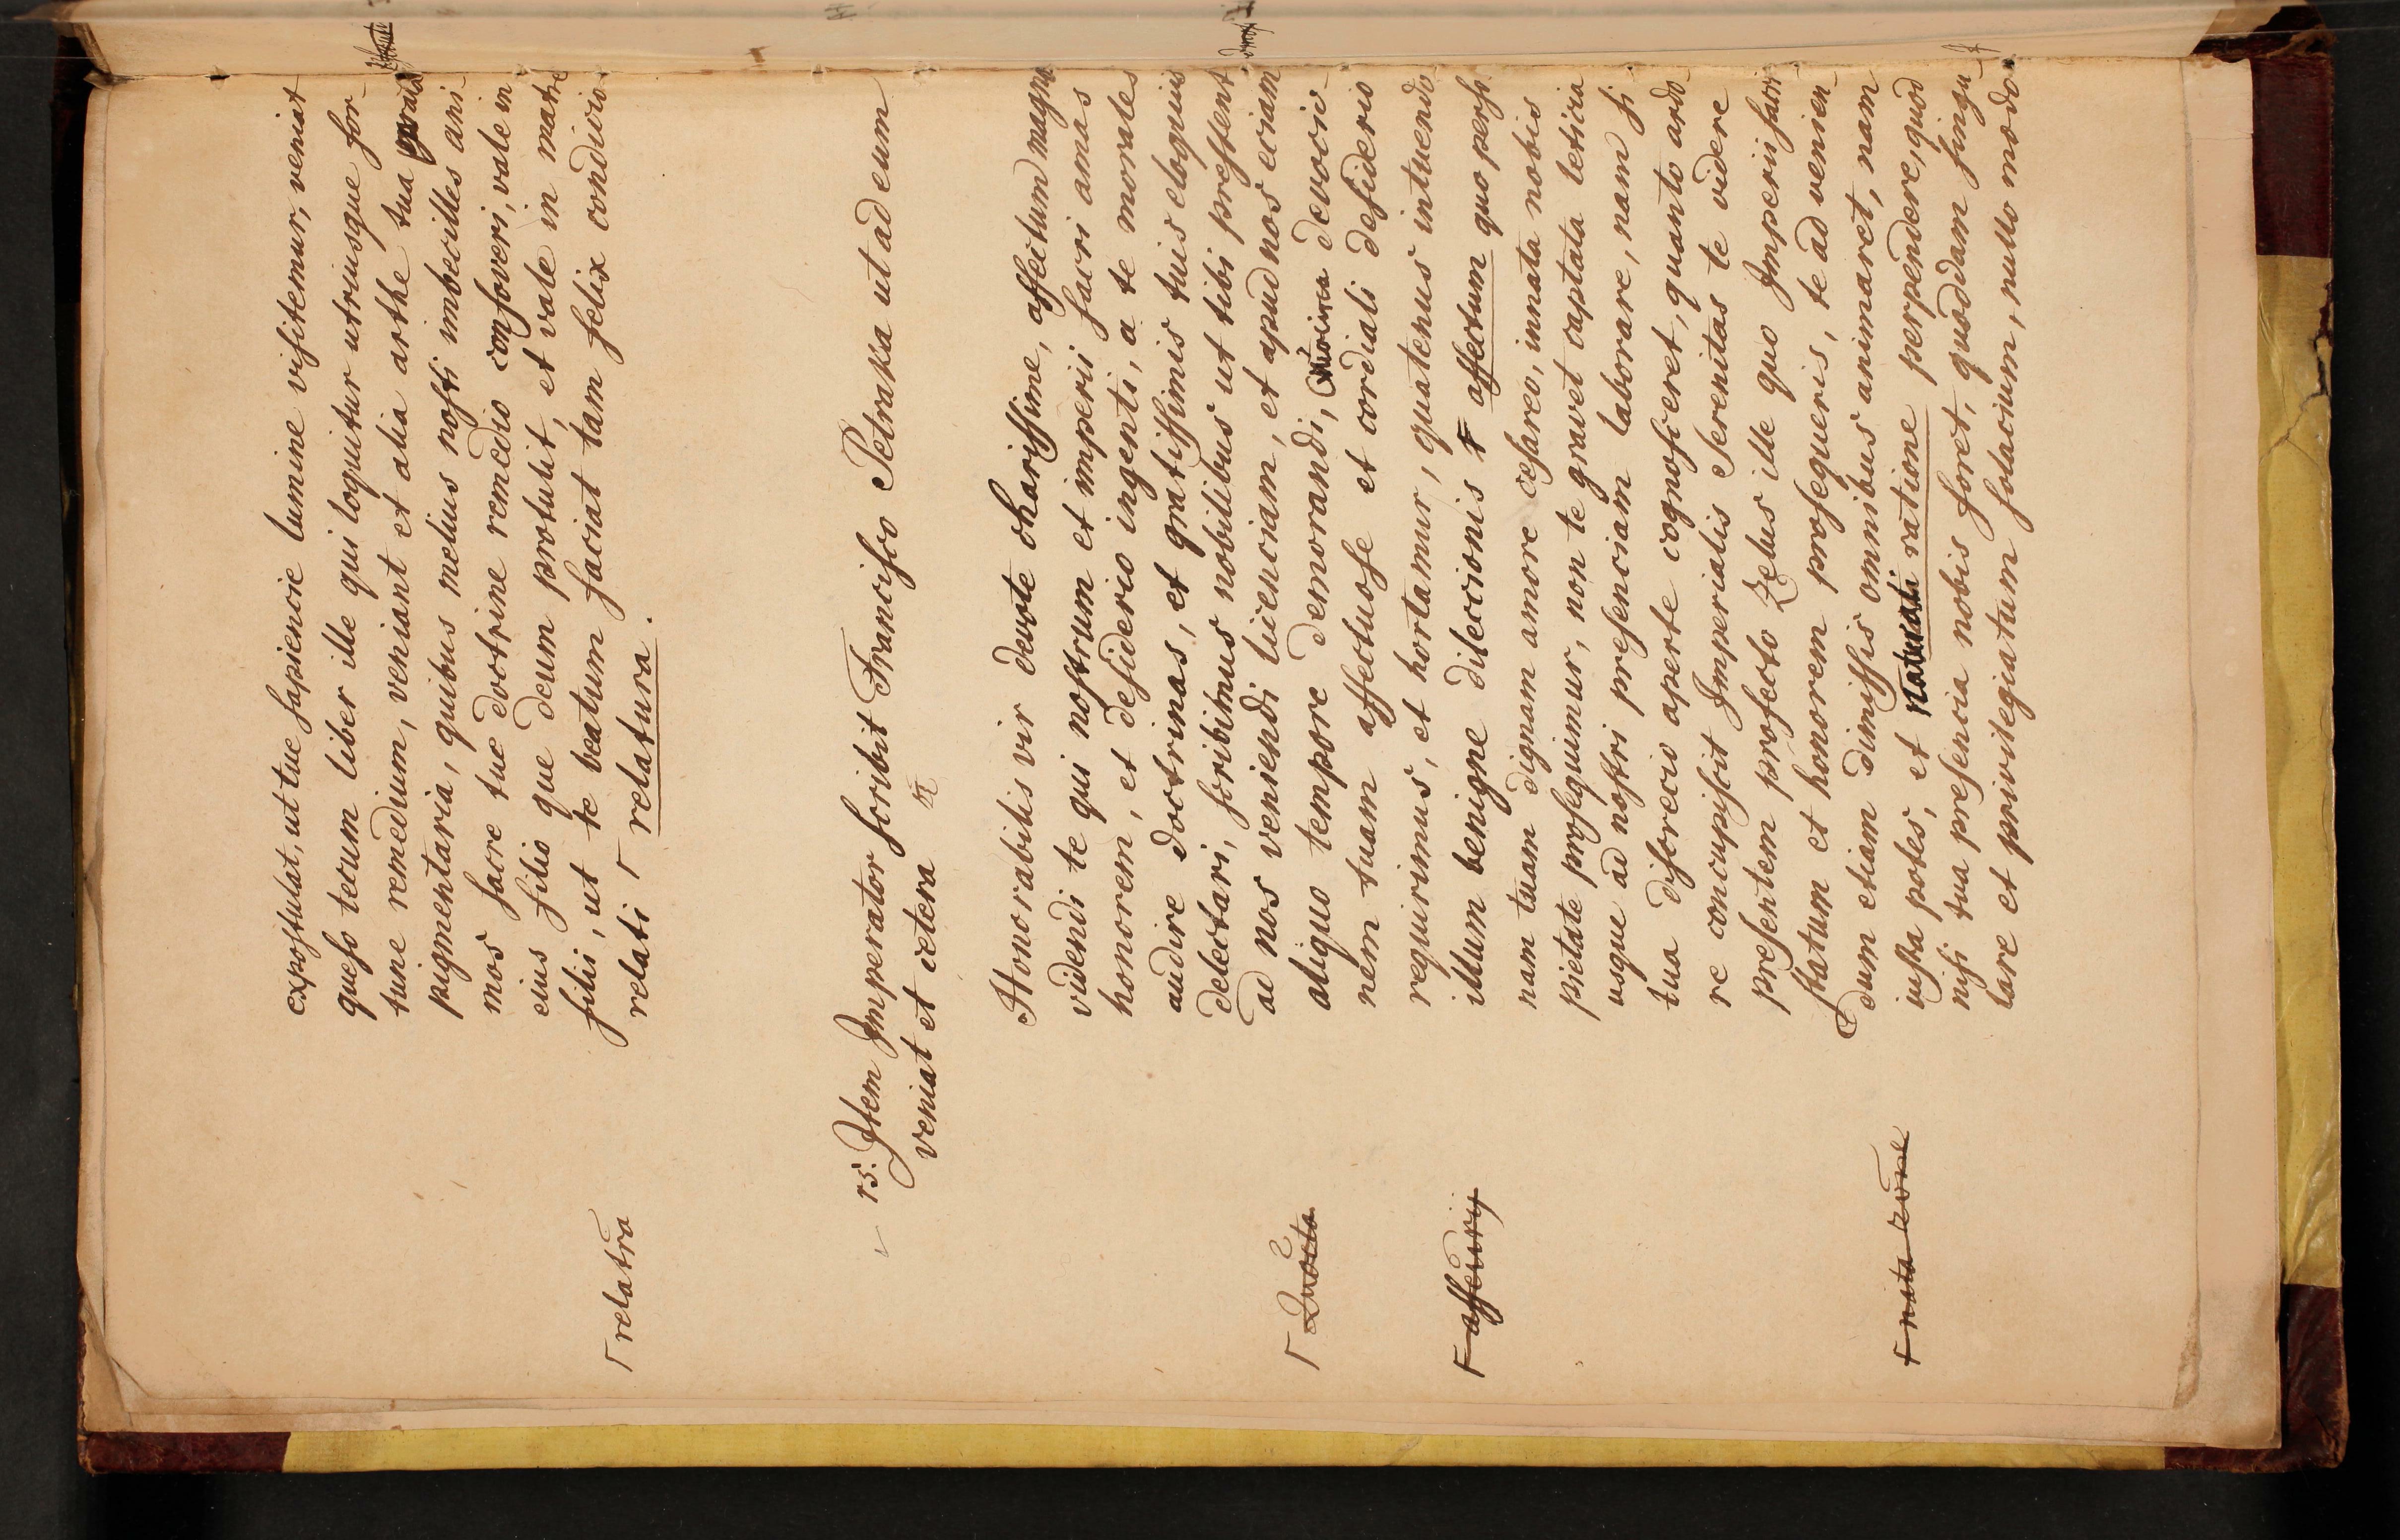 expostulat, ut tue sapiencie lumine visitemur, veniat
queso tecum liber ille qui loquitur utriusque for-
tune remedium, veniant et alia arthe tua
pigmentaria, quibus melius nosti imbecilles ani-
mos sacre tue doctrine remedio confoveri, vale in
eius filio que deum protulit, et vale in matre
filii, ut te beatum faciat tam felix condicio
relati Γ relatura.
Γ relatra
15. Item Imperator scribit Francisco Petraka ut ad eum
veniat et cetera
Honorabilis vir devote charissime, affectum magnum
videndi te qui nostrum et imperii sacri amas
honorem, et desiderio ingenti, a te morales
audire doctrinas, et gratissimis tuis eloquiis
delectari, scribimus nobilibus ut tibi pressent
ad nos veniendi licenciam, et apud nos eciam
aliquo tempore demorandi, devocio-
nem tuam affectuose et cordiali desiderio
requirimus, et hortamur, quatenus intuendo
illum benigne dileccionis Γ affectum quo perso-
nam tuam dignam amore cesareo, innata nobis
pietate prosequimur, non te gravet captata leticia
usque ad nostri presenciam laborare, nam si
tua discrecio aperte cognosceret, quanto ardo-
re concupiscit Imperialis Serenitas te videre
presentem profecto zelus ille quo Imperii sacri
statum et honorem prosequeris, te ad venien-
dum etiam dimissis omnibus animaret, nam
iusta potes, et naturali ratione perpendere, quod
nisi tua presencia nobis foret, quoddam singu-
lare et privilegiatum solacium, nullo modo
Γ
Γ
Γ nata rone